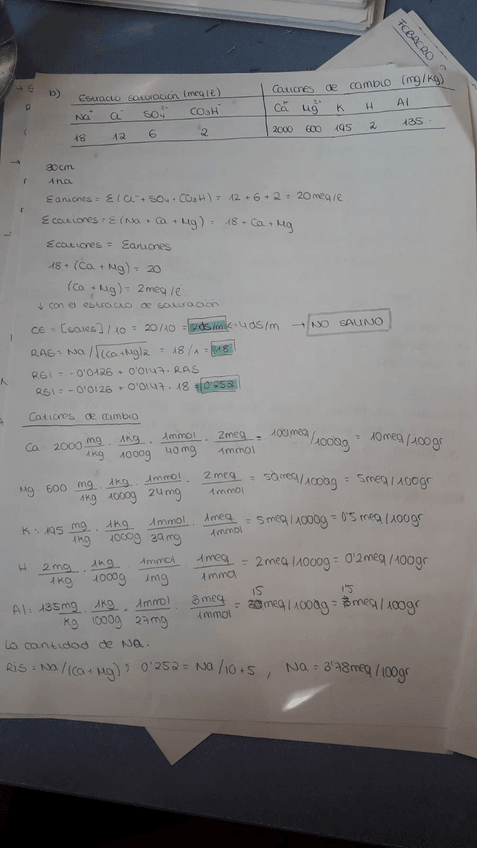 FEBRERO
b) Estracto saturación (meq/l) Cationes de cambio (mg/kg)
Na⁺ Cl⁻ SO₄²⁻ CO₃H⁻ Ca²⁺ Mg²⁺ K H Al
18 12 6 2 2000 600 195 2 135
30cm
1ha
Σaniones = Σ(Cl + SO₄ + CO₃H) = 12 + 6 + 2 = 20 meq/l
Σcationes = Σ(Na + Ca + Mg) = 18 + Ca + Mg
Σcationes = Σaniones
18 + (Ca + Mg) = 20
(Ca + Mg) = 2 meq/l
↓ con el estracto de saturación
CE = [sales] / 10 = 20/10 = 2dS/m < 4dS/m → NO SALINO
RAS = Na / √(Ca+Mg)/2 = 18 / 1 = 18
RSI = -0'0126 + 0'0147 · RAS
RSI = -0'0126 + 0'0147 · 18 = 0'252
Cationes de cambio
Ca: 2000 mg/1kg · 1kg/1000g · 1mmol/40mg · 2meq/1mmol = 100meq/1000g = 10meq/100gr
Mg: 600 mg/1kg · 1kg/1000g · 1mmol/24mg · 2meq/1mmol = 50meq/1000g = 5meq/100gr
K = 195 mg/1kg · 1kg/1000g · 1mmol/39mg · 1meq/1mmol = 5meq/1000g = 0'5meq/100gr
H 2mg/1kg · 1kg/1000g · 1mmol/1mg · 1meq/1mmol = 2meq/1000g = 0'2meq/100gr
Al: 135mg/kg · 1kg/1000g · 1mmol/27mg · 3meq/1mmol = 15meq/1000g = 1'5meq/100gr
La cantidad de Na.
RIS = Na/(Ca+Mg); 0'252 = Na/10+5, Na = 3'78meq/100gr